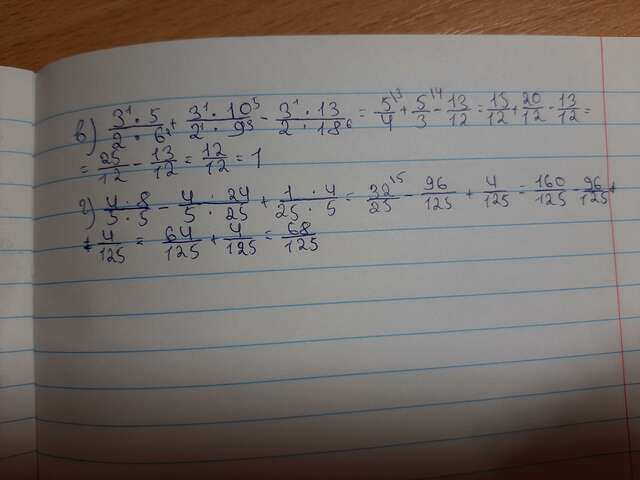 в) 3¹·5/2·6² + 3¹·10⁵/2¹·9³ - 3¹·13/2·18⁶ = 5\³/4 + 5\⁴/3 - 13/12 = 15/12 + 20/12 - 13/12 =
= 25/12 - 13/12 = 12/12 = 1
г) 4·8/5·5 - 4·24/5·25 + 1·4/25·5 = 32\⁵/25 - 96/125 + 4/125 = 160/125 - 96/125 +
+ 4/125 = 64/125 + 4/125 = 68/125